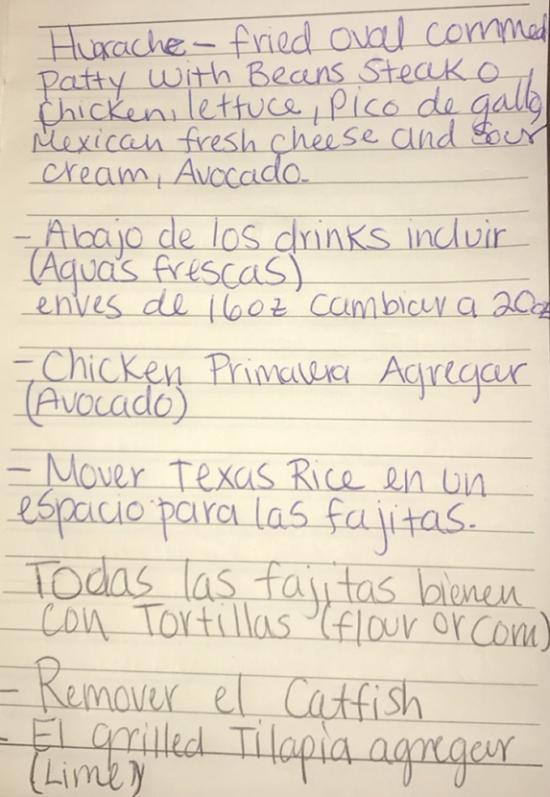 Huarache - fried oval cornmeal
patty with Beans Steak o
chicken, lettuce, Pico de gallo,
Mexican fresh cheese and sour
cream, Avocado.
- Abajo de los drinks incluir
(Aguas frescas)
enves de 16oz cambiar a 20oz
- Chicken Primavera Agregar
(Avocado)
- Mover Texas Rice en un
espacio para las fajitas.
Todas las fajitas bienen
con Tortillas (flour or corn)
- Remover el Catfish
- El grilled Tilapia agregar
(Lime)